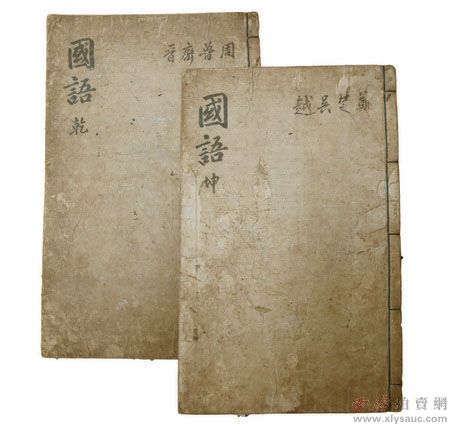 國語
乾
周魯齊晉
國語
坤
鄭楚吳越
西泠拍賣網
www.xlysauc.com